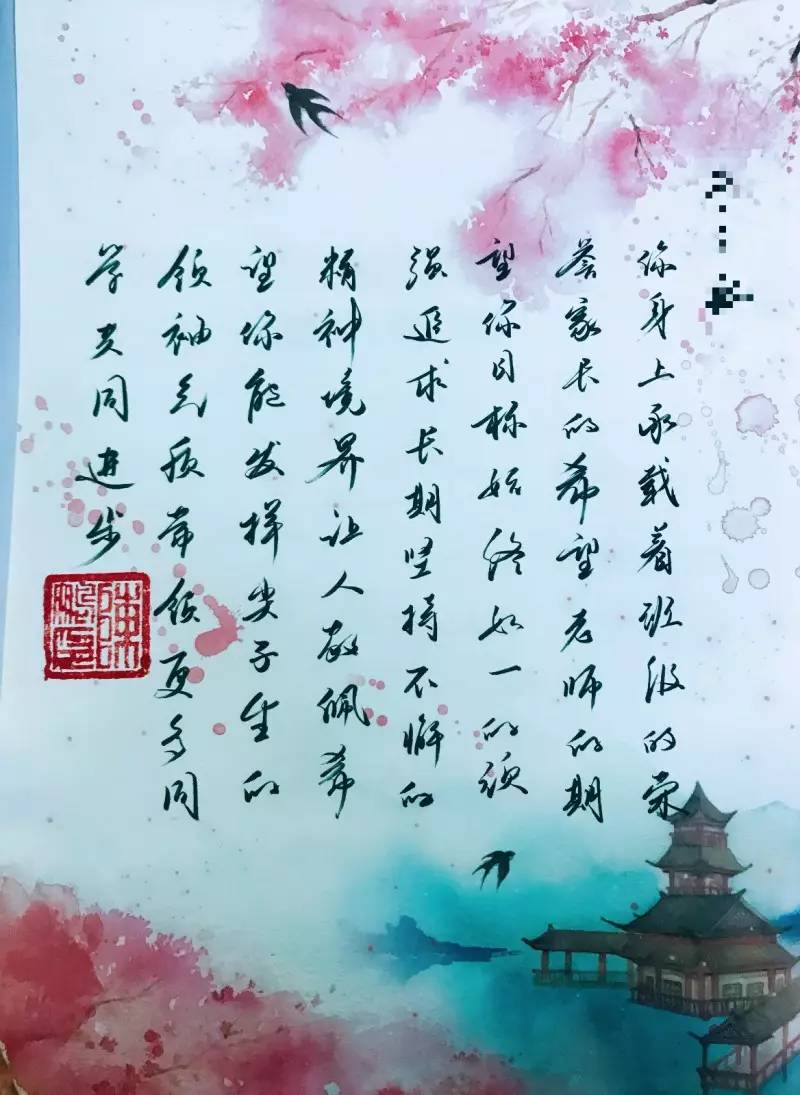 你身上承载着班级的荣
誉家长的希望老师的期
望你目标始终如一的顽
强追求长期坚持不懈的
精神境界让人敬佩希
望你能发挥尖子生的
领袖气质带领更多同
学共同进步